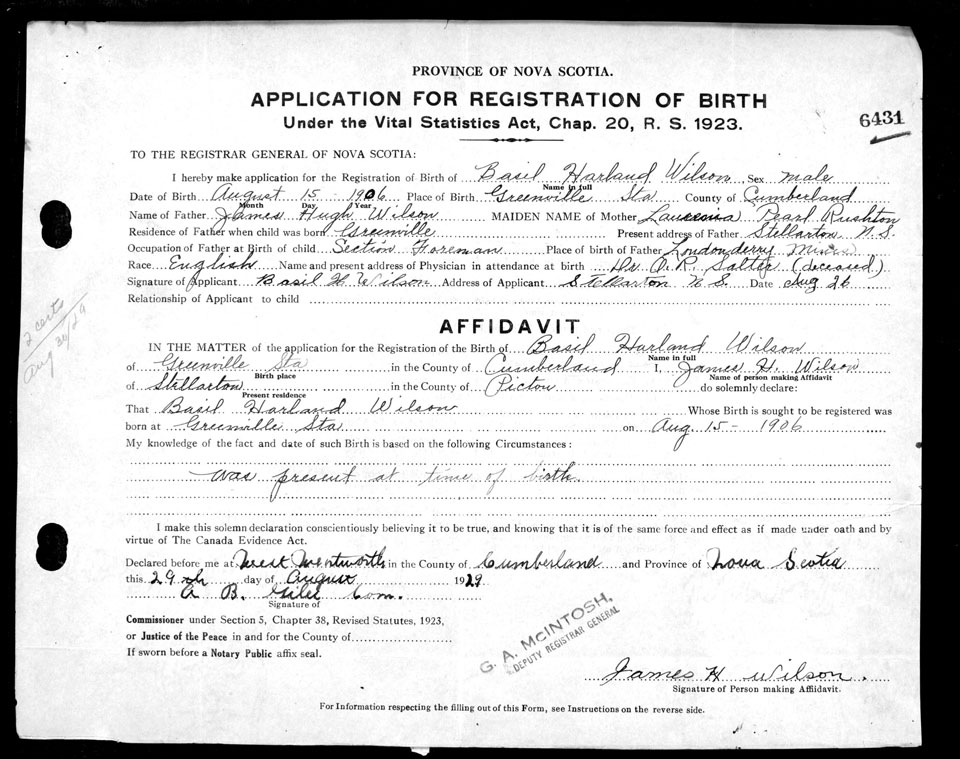 PROVINCE OF NOVA SCOTIA.
APPLICATION FOR REGISTRATION OF BIRTH
Under the Vital Statistics Act, Chap. 20, R. S. 1923.
6431
TO THE REGISTRAR GENERAL OF NOVA SCOTIA:
I hereby make application for the Registration of Birth of Basil Harland Wilson Sex male
Name in full
Date of Birth August 15 1906 Place of Birth Greenville Sta County of Cumberland
Month Day Year
Name of Father James Hugh Wilson MAIDEN NAME of Mother Pearl Rushton
Residence of Father when child was born Greenville Present address of Father Stellarton N.S.
Occupation of Father at Birth of child Section Foreman Place of birth of Father Londonderry Mines
Race English Name and present address of Physician in attendance at birth Dr A. R. (deceased)
Signature of Applicant Basil H Wilson Address of Applicant Stellarton N S. Date Aug 26
Relationship of Applicant to child
2 certs
Aug 30/29
AFFIDAVIT
IN THE MATTER of the application for the Registration of the Birth of Basil Harland Wilson
Name in full
of Greenville Sta in the County of Cumberland I, James H. Wilson
Birth place Name of person making Affidavit
of Stellarton in the County of Picton do solemnly declare:
Present residence
That Basil Harland Wilson Whose Birth is sought to be registered was
born at Greenville Sta on Aug. 15 - 1906
My knowledge of the fact and date of such Birth is based on the following Circumstances:
was present at time of birth.
I make this solemn declaration conscientiously believing it to be true, and knowing that it is of the same force and effect as if made under oath and by
virtue of The Canada Evidence Act.
Declared before me at West Wentworth in the County of Cumberland and Province of Nova Scotia
this 29th day of August 1929
A B. Giles Com.
Signature of
Commissioner under Section 5, Chapter 38, Revised Statutes, 1923,
or Justice of the Peace in and for the County of
If sworn before a Notary Public affix seal.
G. A. McINTOSH,
DEPUTY REGISTRAR GENERAL
James H Wilson.
Signature of Person making Affidavit.
For Information respecting the filling out of this Form, see Instructions on the reverse side.